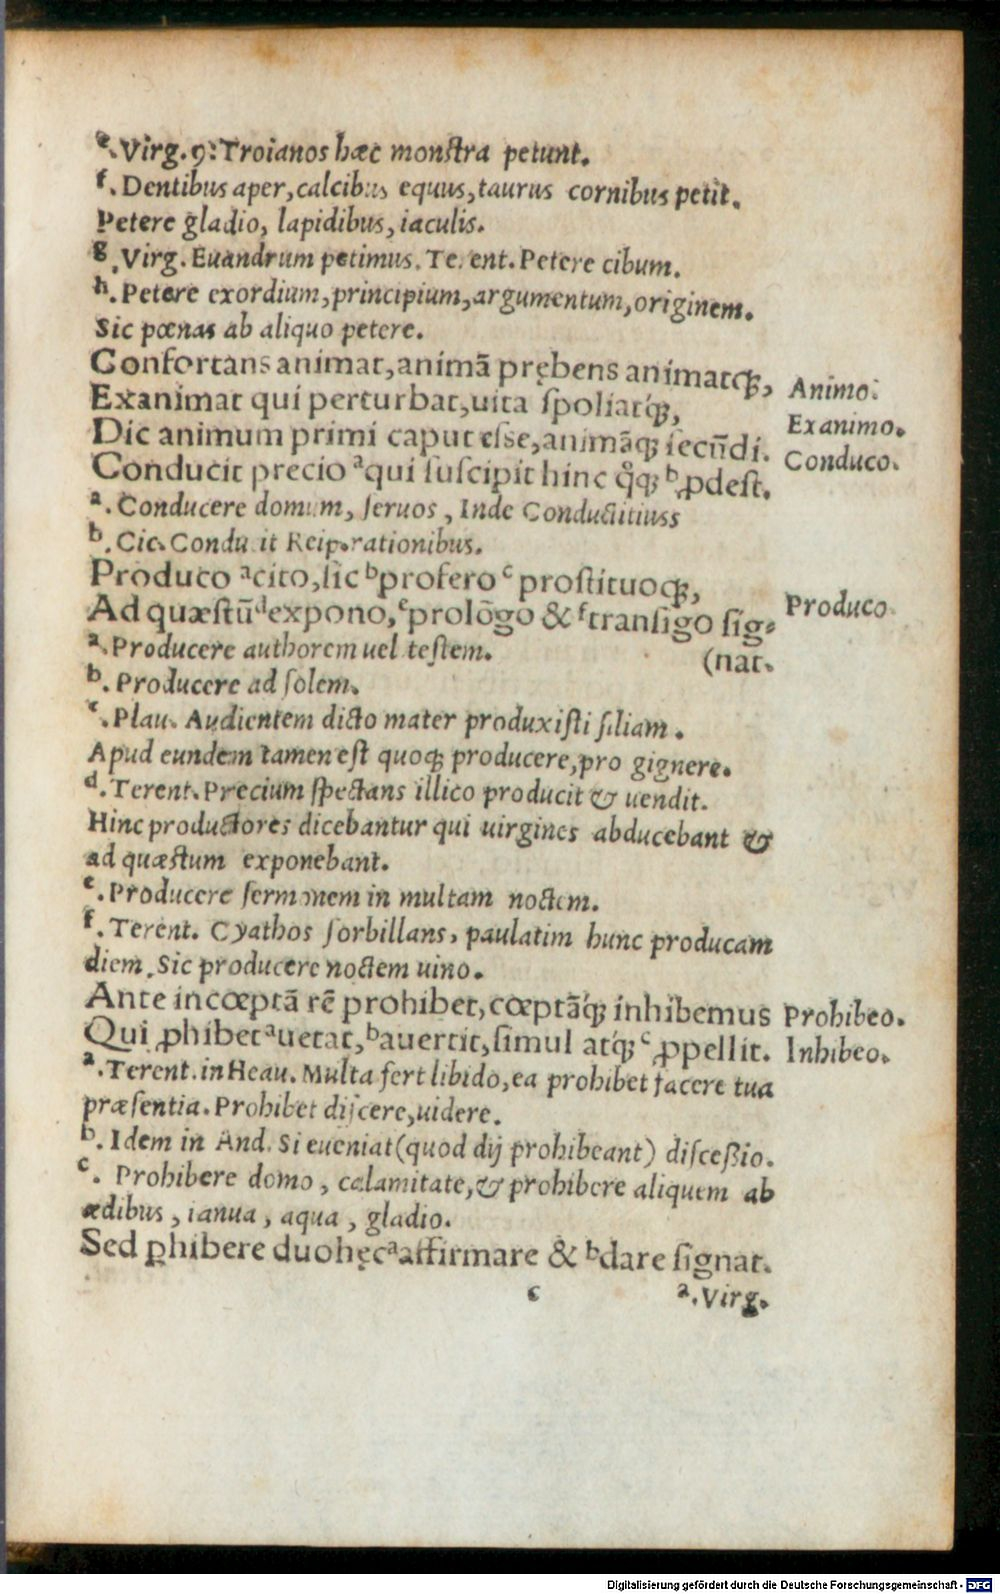 e. Virg. 9: Troianos hæc monstra petunt.
f. Dentibus aper, calcibus equus, taurus cornibus petit.
Petere gladio, lapidibus, iaculis.
g. Virg. Euandrum petimus. Terent. Petere cibum.
h. Petere exordium, principium, argumentum, originem.
Sic pœnas ab aliquo petere.
Confortans animat, animā prębens animatq́;, Animo.
Exanimat qui perturbat, uita spoliatq́;, Exanimo.
Dic animum primi caput esse, animāq; secūdi.
Conducit precio ᵃqui suscipit hinc qͦq; ᵇꝓdest. Conduco.
a. Conducere domum, seruos, Inde Conductitiuss
b. Cic. Conducit Reip. rationibus.
Produco ᵃcito, sic ᵇprofero ᶜprostituoq;, Produco.
Ad quæstū ᵈexpono, ᵉprolōgo & ᶠtransigo sig-
(nat.
a. Producere authorem uel testem.
b. Producere ad solem.
c. Plau. Audientem dicto mater produxisti filiam.
Apud eundem tamen est quoq; producere, pro gignere.
d. Terent. Precium spectans illico producit & uendit.
Hinc productores dicebantur qui uirgines abducebant &
ad quæstum exponebant.
e. Producere sermonem in multam noctem.
f. Terent. Cyathos sorbillans, paulatim hunc producam
diem. Sic producere noctem uino.
Ante incœptā rē prohibet, cœptāq́; inhibemus Prohibeo.
Qui ꝓhibet ᵃuetat, ᵇauertit, simul atq́; ᶜꝓpellit. Inhibeo.
a. Terent. in Heau. Multa fert libido, ea prohibet facere tua
præsentia. Prohibet discere, uidere.
b. Idem in And. Si eueniat (quod dij prohibeant) disceßio.
c. Prohibere domo, calamitate, & prohibere aliquem ab
ædibus, ianua, aqua, gladio.
Sed ꝓhibere duo hęc ᵃaffirmare & ᵇdare signat.
c a. Virg.
Digitalisierung gefördert durch die Deutsche Forschungsgemeinschaft - DFG